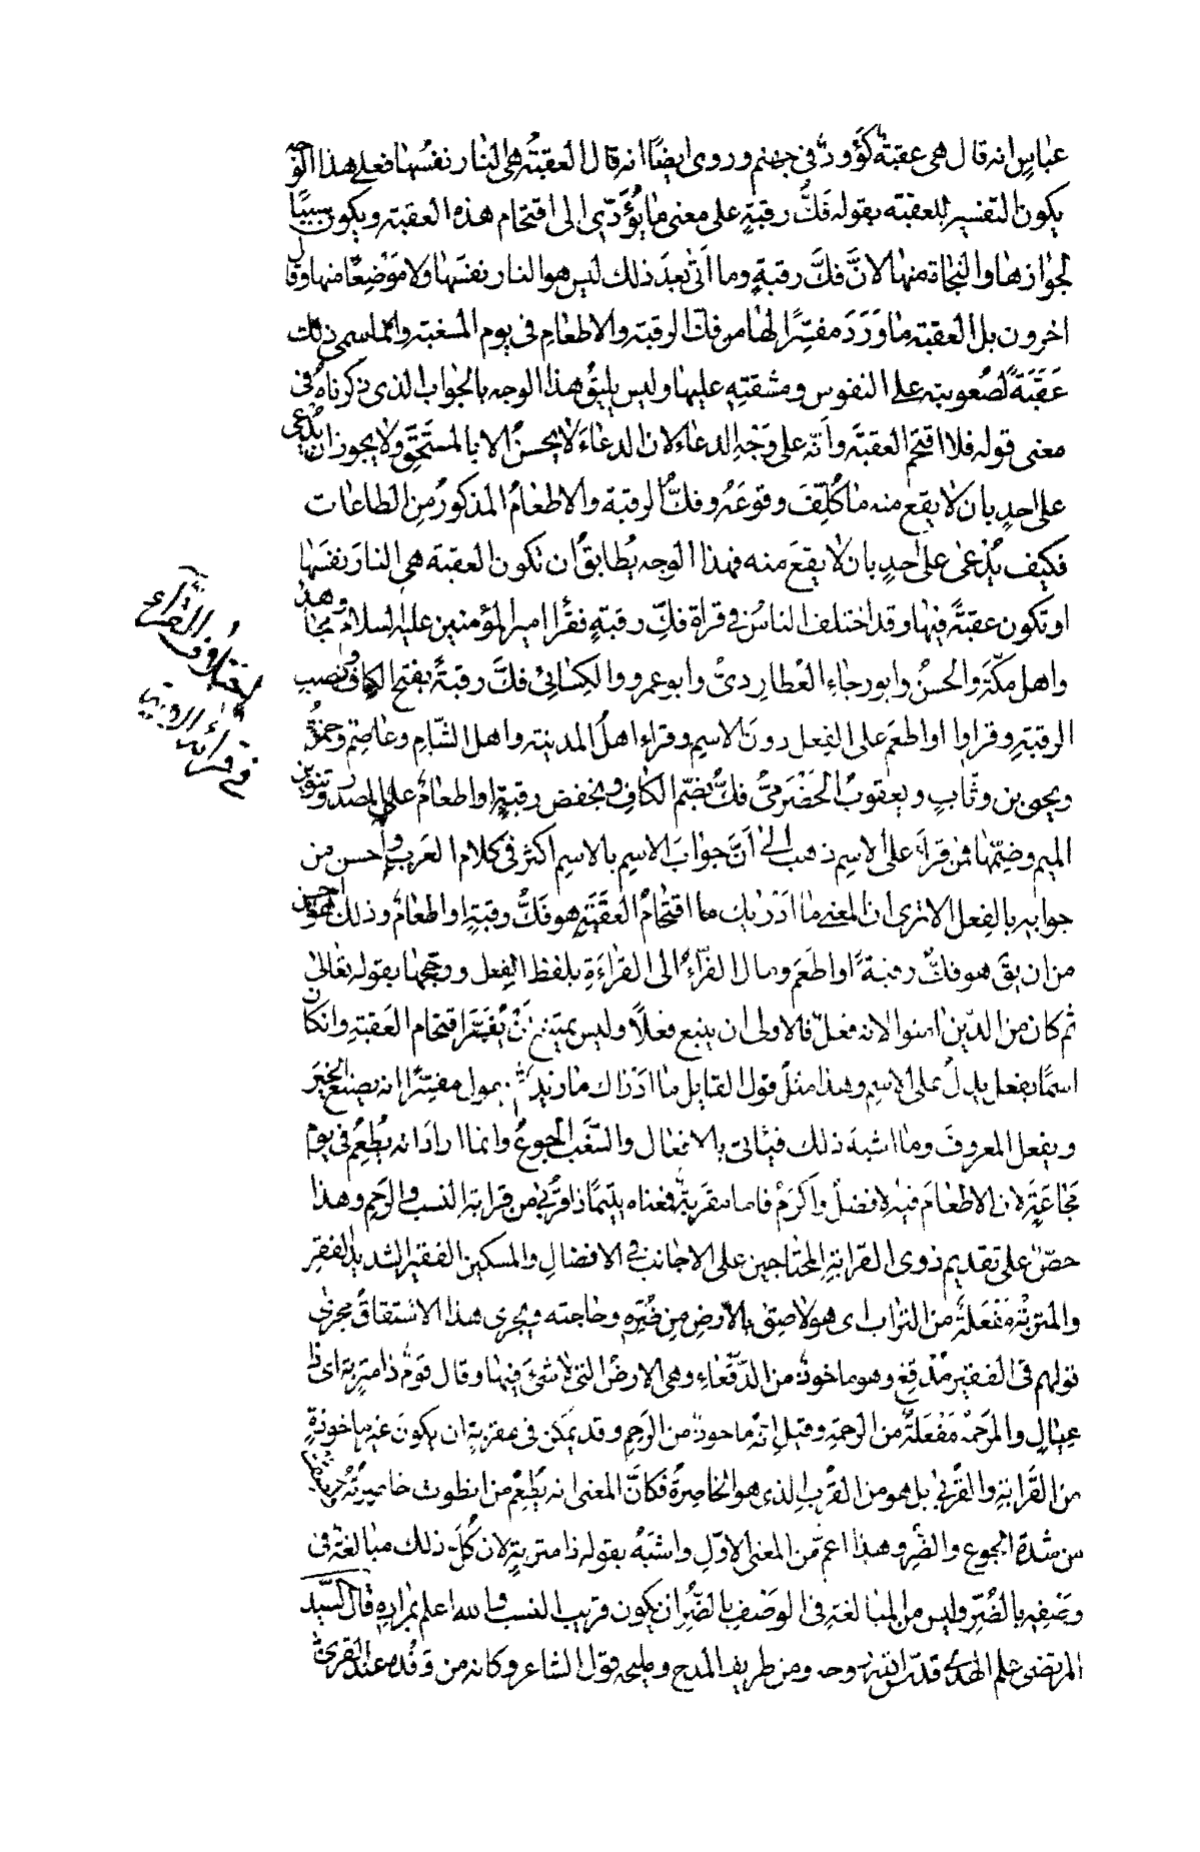 عباسٍ انه قال هى عقبةٌ كَؤودٌ فى جهنم وروى ايضًا انه قال العقبةُ هى النار نفسُها فعلى هذا الوجه
يكون التفسير للعقبة بقوله فَكُّ رقبةٍ على معنى ما يُؤَدّى الى اقتحام هذه العقبة ويكون سببًا
لجوازها والنجاة منها لانَّ فَكَّ رقبةٍ وما اَتى بعدَ ذلك ليس هو النار نفسَها ولا مَوْضِعًا منها وقال
اخرون بل العقبة ما وَرَدَ مفسِّرًا لها من فكّ الرقبة والاطعامِ فى يوم المسغبة وانما سمى ذلك
عَقَبَةً لصُعوبته على النفوس ومشقتِهِ عليها وليس يليقُ هذا الوجه بالجواب الذى ذكرناهُ فى
معنى قوله فلا اقتحَمَ العقبةَ وأنّه على وَجْهِ الدعاء لان الدعاءَ لا يحسنُ الا بالمستَحِقِّ ولا يجوز ان يُدعى
على احدٍ بان لا يقع منه ما كُلِّفَ وقوعَهُ وفكُّ الرقبة والاطعامُ المذكورُ مِن الطاعات
فكيف يُدْعى على احدٍ بان لا يقعَ منه فهذا الوجه يُطابقُ ان تكون العقبة هى النارَ نفسَها
او تكون عقبةً فيها وقد اختلف الناسُ فى قراة فكِّ رقبةٍ فقرأ امير المؤمنين عليه السلام ومجاهد
واهل مكّةَ والحسنُ وابو رجاءِ العُطارِدىُّ وابو عمرو والكِسائىُ فكَّ رقبةً بفتح الكاف ونصبِ
الرقبةِ وقراوا او اطعَم على الفِعل دونَ الاسيم وقراء اهلُ المدينة واهل الشّامِ وعاصِم وحمزةُ
ويحيى بن وثّابٍ ويعقوبُ الحَضْرَمىُّ فكُّ بضَمّ الكافِ وبخفض رقبةٍ او اطعامٌ على المصدر وتنوينِ
الميم وضمِّها فمن قرأَ على الاسِم ذهب الى اَنَّ جوابَ الاسِم بالاسِم اكثر فى كلام العَرب واَحسن من
جوابِه بالفعل الا ترى ان المعنى ما ادَرْيكَ ما اقتحامُ العقَبَةِ هو فَكُّ رقبةٍ او اطعامٌ وذلك احسن
من ان يقَ هو فكَّ رقبةً او اطعَمَ ومال الفرّاءُ الى القراءَةِ بلفظ الفِعل ورجَّحها بقوله تعالى
ثم كان من الذين امنوا لانه فعلٌ فالاولى ان يتبع فعلًا وليس يمتنع اَنْ يُفَسَّرَ اقتحام العَقبةِ وان كان
اسمًا بفعلٍ يدلُّ على الاسِم وهذا مثلُ قول القايل ما ادَرْاك ما زيد يقول مفسِّرًا انه يصنع الخيَر
ويفعل المعروفَ وما اشبهَ ذلك فيأتى بالافعال والسَّغَب الجوعُ وانما ارادَ انه يُطْعِمُ فى يومِ
مَجاعَةٍ لان الاطعامَ فيه افضلُ واَكرَمُ فاما مقربةٍ فمعناه يتيمًا ذا قُربى من قرابة النسب والرَحِم وهذا
حضّ على تقديم ذوى القرابةِ المحتاجين على الاجانب فى الافضالِ والمسكين الفقير الشديدُ الفقرِ
والمَتربةُ مَفْعَلةٌ من التراب اى هو لاصِقٌ بالارض مِن ضُرِّهِ وحاجته ويجرى هذا الاشتقاقُ مجرى
قولهم فى الفقيرِ مُدْقِع وهو ماخوذٌ من الدَّقْعاءِ وهى الارضُ التى لا شئَ فيها وقال قومٌ ذا متربةٍ اى ذا
عيالٍ والمرَحمةُ مَفْعَلةٌ من الرحمةِ وقيل انّه ماخوذ من الرَحِم وقد يُمكن فى مقربةٍ ان يكونَ غير ماخوذةٍ
من القَرابةِ والقُربى بل هو من القُربِ الذى هو الخاصِرةُ فكانَّ المعنى انه يُطعِمُ من انطوت خاصِرَتُهُ
من شدة الجوعِ والضُرِ وهذا اعمّ من المعنى الاوّلِ واشبَهُ بقوله ذا متربةٍ لان كُلَّ ذلك مبالغةٌ فى
وَصْفِهِ بالضُّرِّ وليس من المبالغة فى الوَصْفِ بالضُرِّ ان يكون قريب النسب والله اعلم بمرادِه قال السَّيّد
المرتضى علم الهدى قدّس الله روحه ومن طريف المدح ومليحِه قول الشاعر وكانه من وَفدِه عند القِرىٰ
اختلاف القُرّاء
فى قرائة الاية